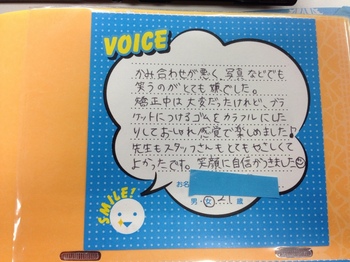 VOICE
かみ合わせが悪く、写真などでも
笑うのがとても嫌でした。
矯正中は大変だったけれど、ブラ
ケットにつけるゴムをカラフルにした
りしておしゃれ感覚で楽しめました♪
先生もスタッフさんもとてもやさしくて
よかったです。笑顔に自信がつきました☺
お名
男・女 歳
SMILE!